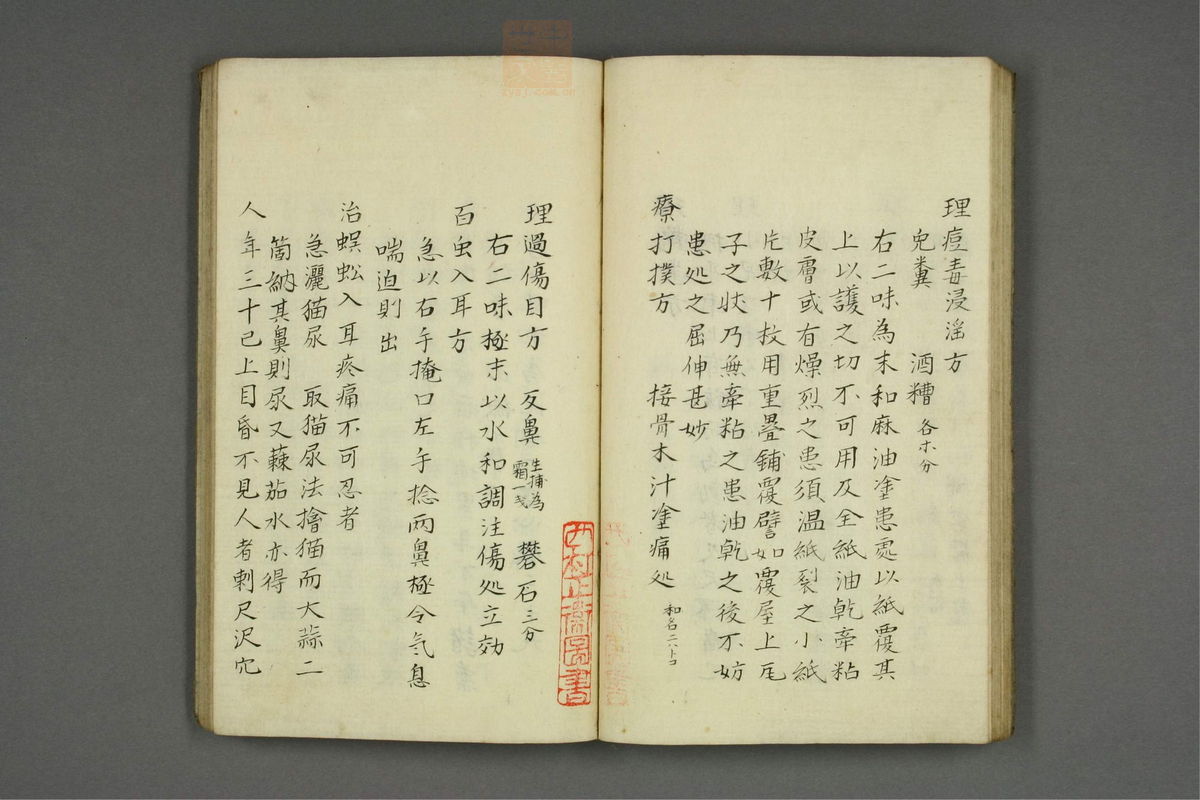 理痘毒浸淫方
兔糞　酒糟 各等分
右二味為末和麻油塗患處以紙覆其
上以護之切不可用及全紙油乾牽粘
皮膚或有燥烈之患須温紙裂之小紙
片數十枚用重疊鋪覆譬如覆屋上瓦
子之狀乃無牽粘之患油乾之後不妨
患処之屈伸甚妙
療打撲方　接骨木汁塗痛処 和名ニハトコ
理過傷目方　反鼻 生捕為霜一戔　礬石 三分
右二味極末以水和調注傷処立効
百虫入耳方
急以右手掩口左手捻兩鼻極令氣息
喘迫則出
治蜈蚣入耳疼痛不可忍者
急灑猫尿　取猫尿法擒猫而大蒜二
箇納其鼻則尿又蘓茄水亦得
人年三十已上目昏不見人者刺尺沢穴
西村正斎圖書